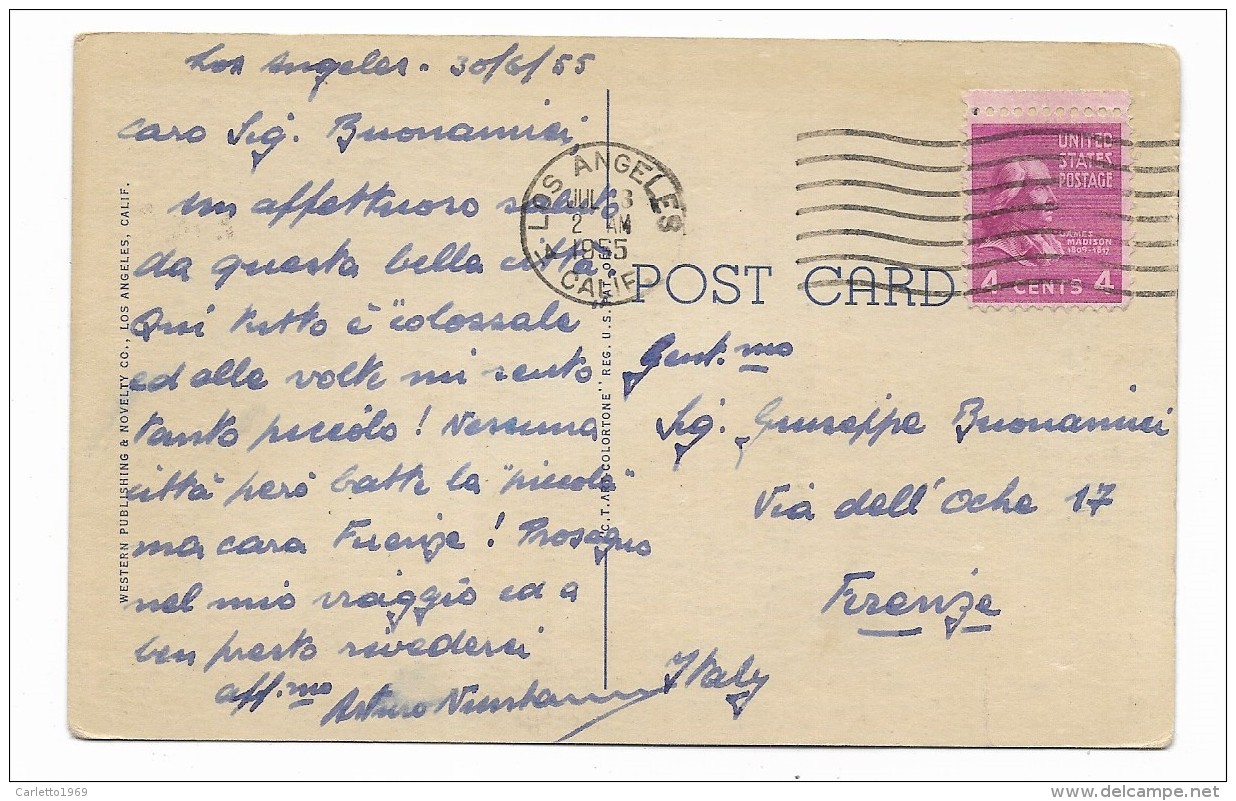 Los Angeles. 30/6/55
Caro Sig. Buonamici,
un affettuoso saluto
da questa bella città.
Qui tutto è "colossale
ed alle volte mi sento
tanto piccolo! Nessuna
città però batte la "piccola"
ma cara Firenze! Proseguo
nel mio viaggio ed a
ben presto rivederci
aff.mo
Arturo
WESTERN PUBLISHING & NOVELTY CO., LOS ANGELES, CALIF.
C.T. ART COLORTONE" REG. U.S. PAT. OFF.
LOS ANGELES
JUL 3
2 AM
1955
CALIF.
POST CARD
UNITED
STATES
POSTAGE
JAMES
MADISON
1809-1817
4 CENTS 4
Gent.mo
Sig. Giuseppe Buonamici
Via dell'Oche 17
Firenze
Italy
Carletto1969
www.delcampe.net